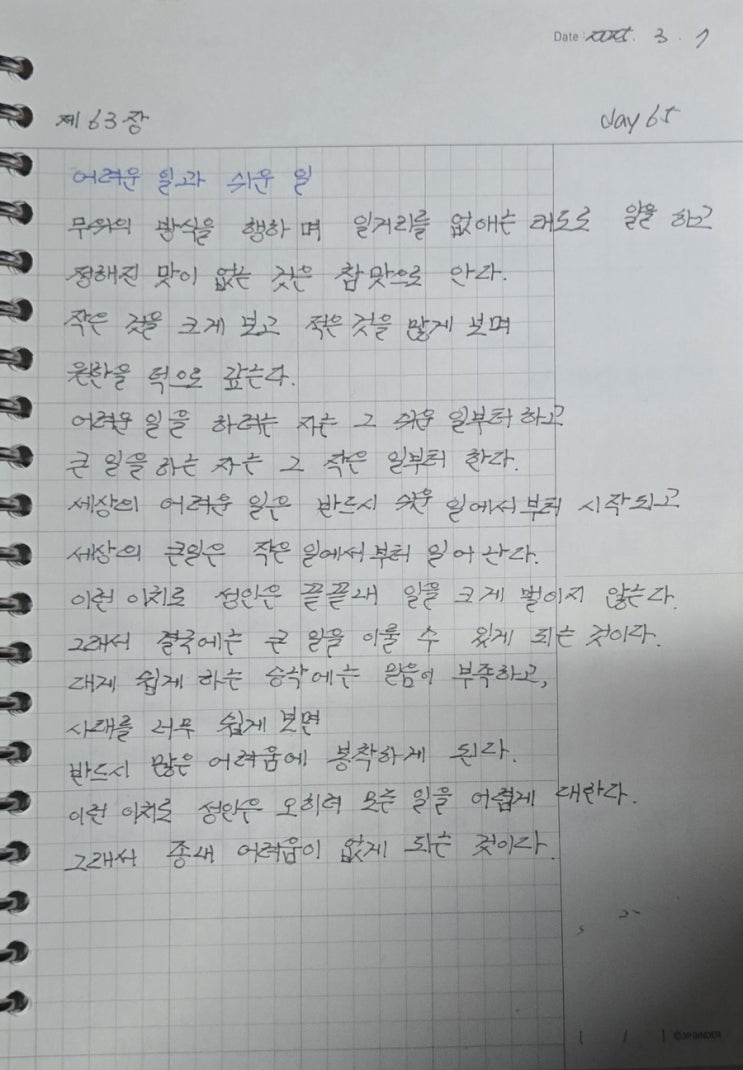 Date : 2025. 3. 7
제 63장
day 65
어려운 일과 쉬운 일
무위의 방식을 행하며 일거리를 없애는 태도로 일을 하고
정해진 맛이 없는 것은 참맛으로 안다.
작은 것을 크게 보고 적은 것을 많게 보며
원한을 덕으로 갚는다.
어려운 일을 하려는 자는 그 쉬운 일부터 하고
큰 일을 하는 자는 그 작은 일부터 한다.
세상의 어려운 일은 반드시 쉬운 일에서부터 시작되고
세상의 큰일은 작은 일에서부터 일어난다.
이런 이치로 성인은 끝끝내 일을 크게 벌이지 않는다.
그래서 결국에는 큰 일을 이룰 수 있게 되는 것이다.
대게 쉽게 하는 승낙에는 믿음이 부족하고,
사태를 너무 쉽게 보면
반드시 많은 어려움에 봉착하게 된다.
이런 이치로 성인은 오히려 모든 일을 어렵게 대한다.
그래서 종내 어려움이 없게 되는 것이다.
[ / ] ©3P BINDER